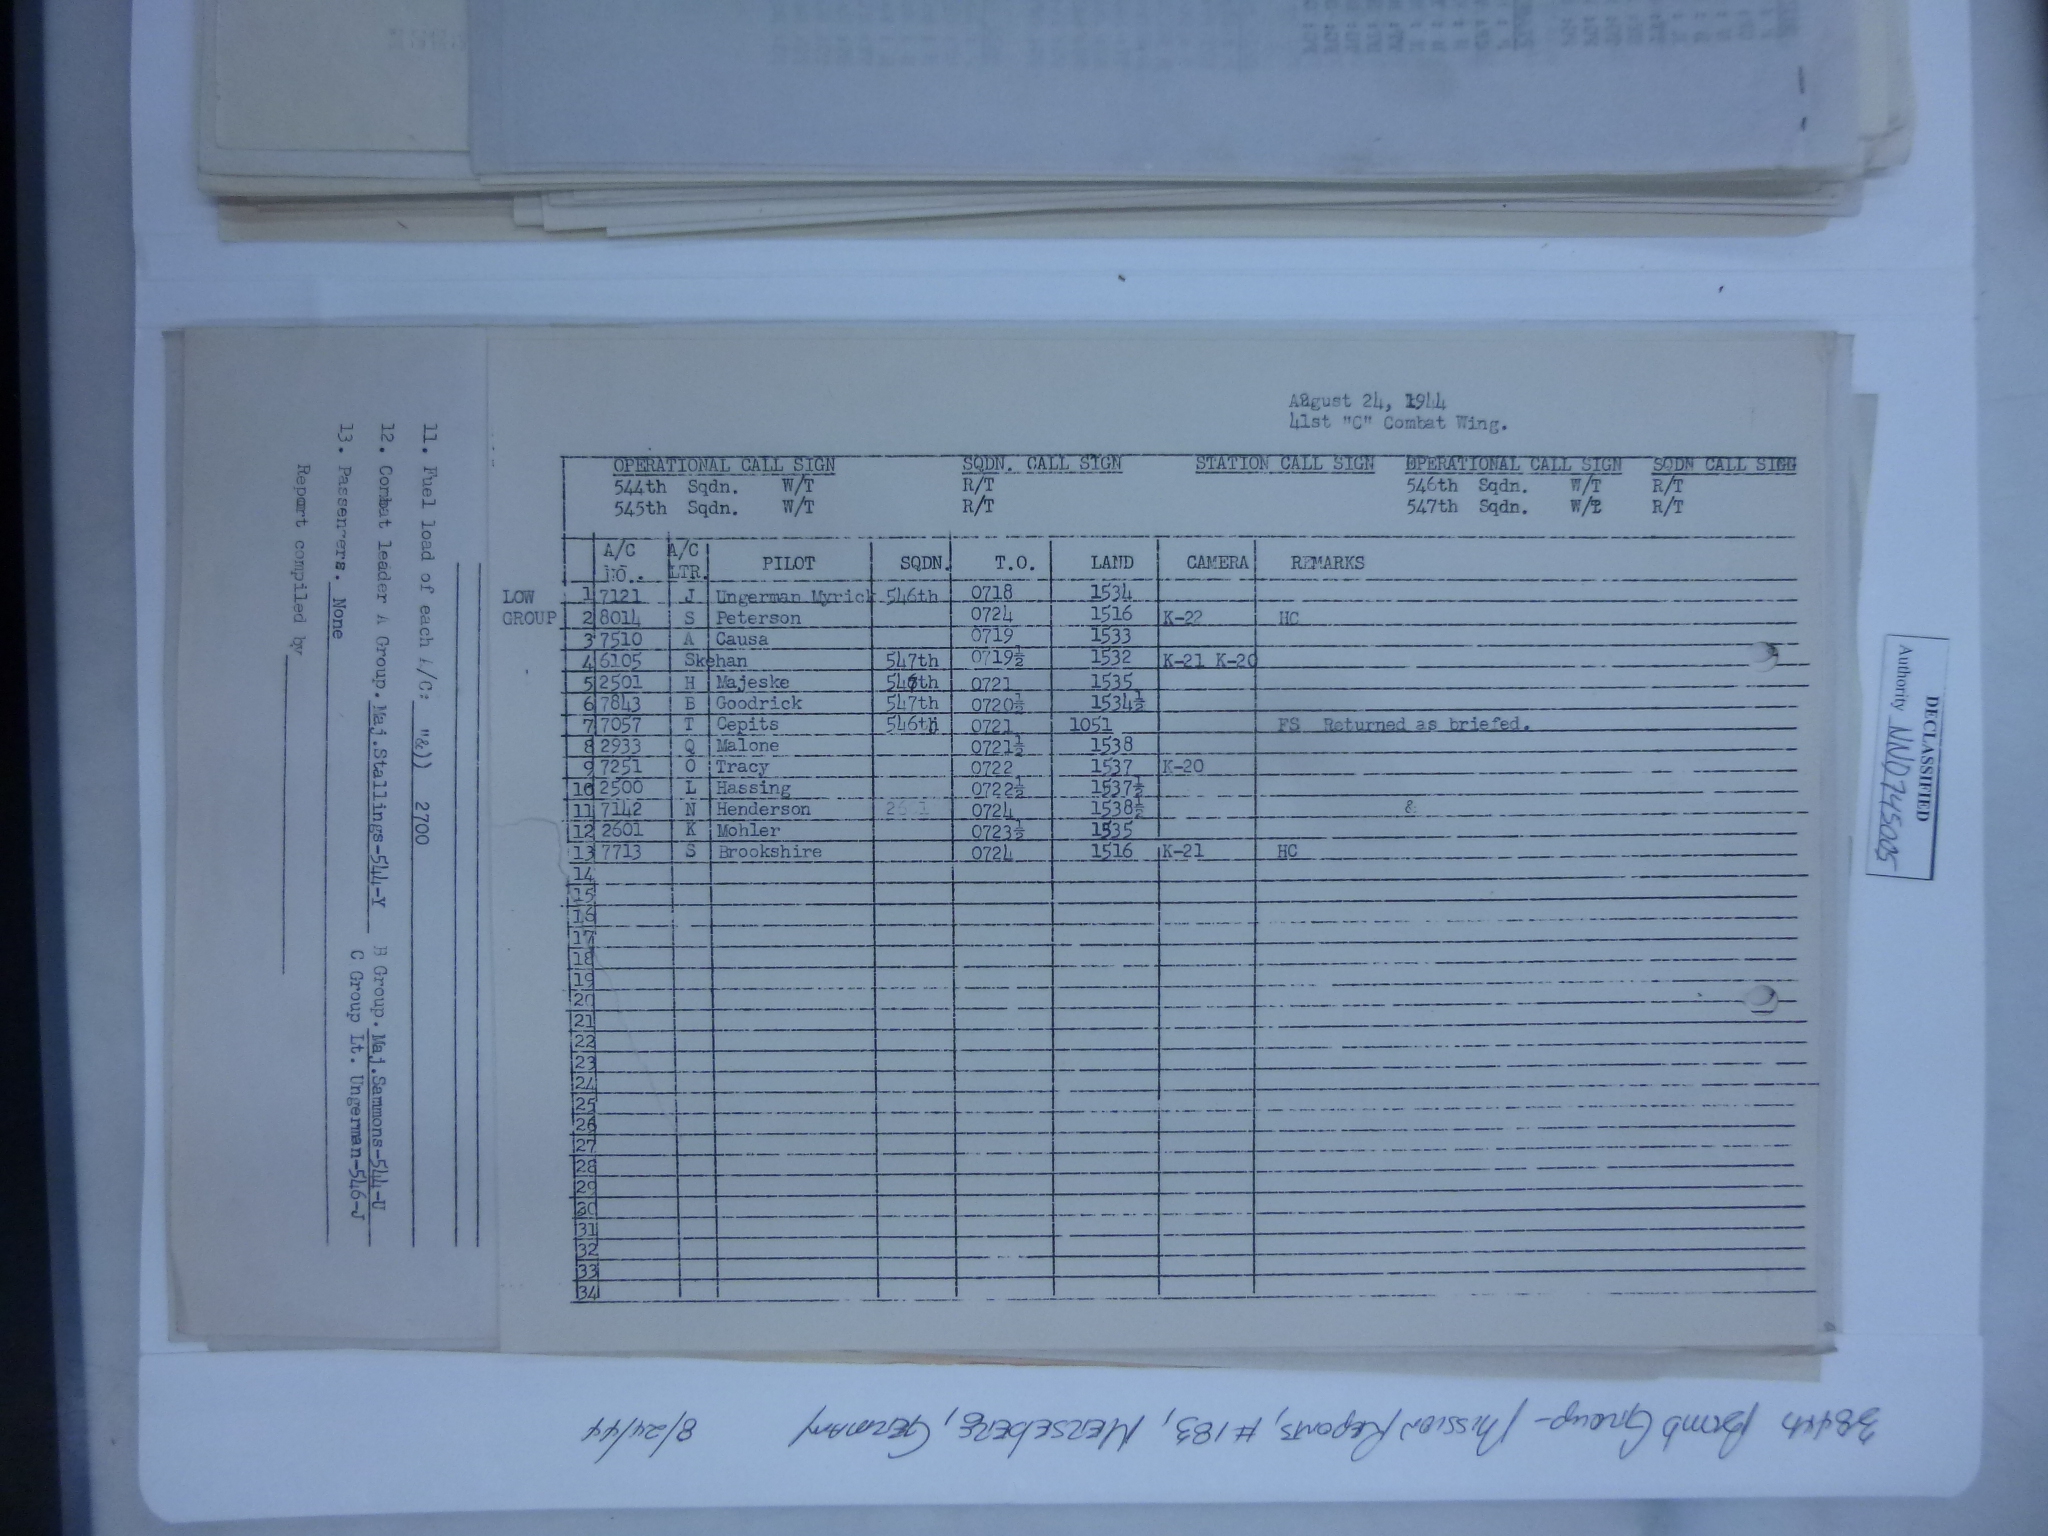 August 24, 1944
41st "C" Combat Wing.
OPERATIONAL CALL SIGN SQDN. CALL SIGN STATION CALL SIGN OPERATIONAL CALL SIGN SQDN CALL SIGN
544th Sqdn. W/T R/T 546th Sqdn. W/T R/T
545th Sqdn. W/T R/T 547th Sqdn. W/T R/T
A/C NO.. A/C LTR. PILOT SQDN. T.O. LAND CAMERA REMARKS
LOW 1 7121 J Ungerman Myrick 546th 0718 1534
GROUP 2 8014 S Peterson 0724 1516 K-22 HC
3 7510 A Causa 0719 1533
4 6105 Skehan 547th 0719½ 1532 K-21 K-20
5 2501 H Majeske 546th 0721 1535
6 7843 B Goodrick 547th 0720½ 1534½
7 7057 T Cepits 546th 0721 1051 FS Returned as briefed.
8 2933 Q Malone 0721½ 1538
9 7251 O Tracy 0722 1537 K-20
10 2500 L Hassing 0722½ 1537½
11 7142 N Henderson 0724 1538½ &
12 2601 K Mohler 0723½ 1535
13 7713 S Brookshire 0724 1516 K-21 HC
14
15
16
17
18
19
20
21
22
23
24
25
26
27
28
29
30
31
32
33
34
11. Fuel load of each A/C: "&)) 2700
12. Combat leader A Group. Maj.Stallings-544-Y B Group. Maj.Sammons-544-U
C Group Lt. Ungerman-546-J
13. Passengers. None
Report compiled by
DECLASSIFIED
Authority NND745005
384th Bomb Group - Mission Reports, #183, Merseberg, Germany 8/24/44